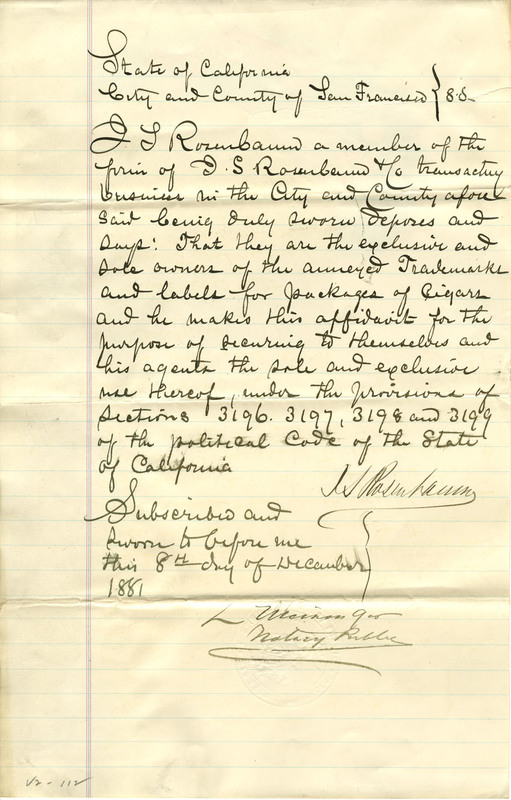 State of California
City and County of San Francisco } S.S.
I S Rosenbaum a member of the
firm of I. S. Rosenbaum & Co transacting
business in the City and County afore
said being duly sworn deposes and
says: That they are the exclusive and
sole owners of the annexed Trademarks
and labels for packages of Cigars
and he makes this affidavit for the
purpose of securing to themselves and
his agents the sole and exclusive
use thereof, under the provisions of
Sections 3196. 3197, 3198 and 3199
of the political Code of the State
of California
I S Rosenbaum
Subscribed and
sworn to before me
this 8th day of December
1881
L
Notary Public
V2 - 112